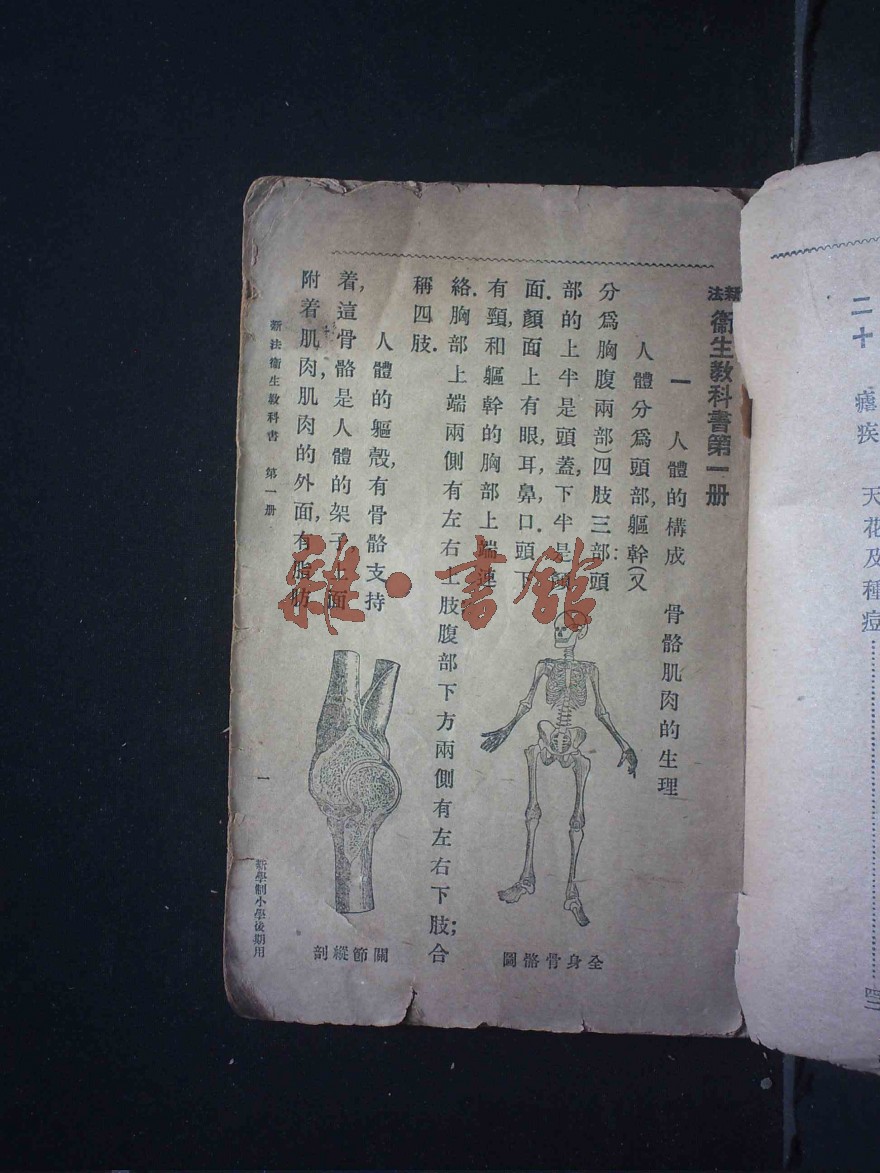 新法衞生教科書第一册
一　人體的構成　骨骼肌肉的生理
人體分爲頭部，軀幹（又
分爲胸腹兩部）四肢三部：頭
部的上半是頭蓋，下半是顏
面．顏面上有眼，耳，鼻，口．頭下
有頸，和軀幹的胸部上端連
絡．胸部上端兩側有左右上肢腹部下方兩側有左右下肢；合
稱四肢．
人體的軀殼，有骨骼支持
着，這骨骼是人體的架子，上面
附着肌肉，肌肉的外面，有脂肪
全身骨骼圖
關節縱剖
新法衞生教科書　第一册
一
新學制小學後期用
雜·書館
二十　瘧疾　天花及種痘